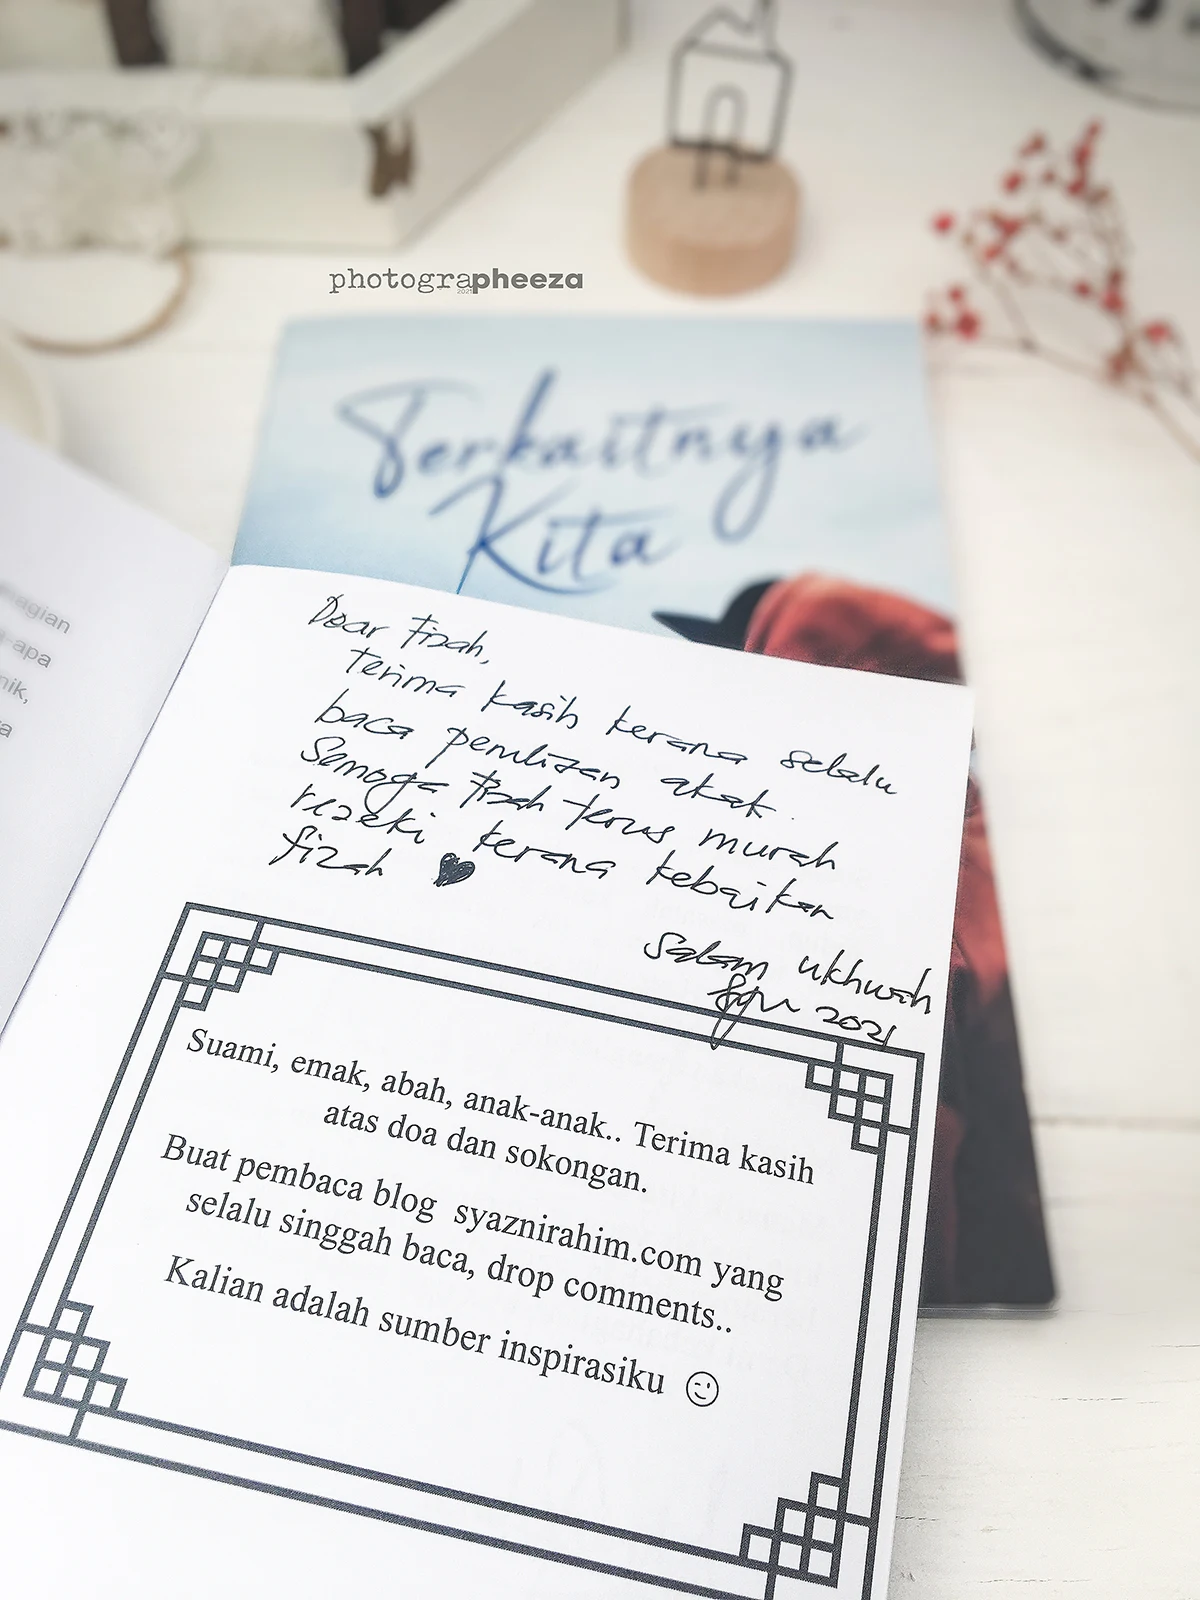 photographeeza
2021
Terkaitnya
Kita
Dear Fizah,
Terima kasih kerana selalu
baca penulisan akak.
Semoga Fizah terus murah
rezeki kerana kebaikan
fizah ♥
Salam ukhwah
2021
agian
apa
nik,
a
Suami, emak, abah, anak-anak.. Terima kasih
atas doa dan sokongan.
Buat pembaca blog syaznirahim.com yang
selalu singgah baca, drop comments..
Kalian adalah sumber inspirasiku 😉